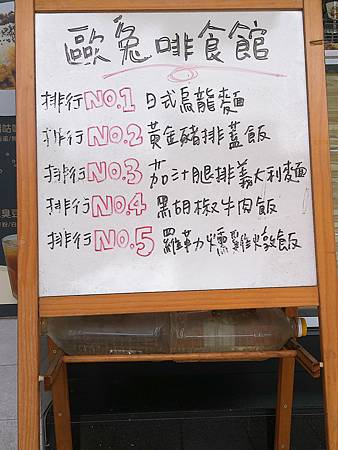 歐兔啡食館
排行NO.1 日式烏龍麵
排行NO.2 黃金豬排蓋飯
排行NO.3 茄汁腿排義大利麵
排行NO.4 黑胡椒牛肉飯
排行NO.5 羅勒燻雞燉飯